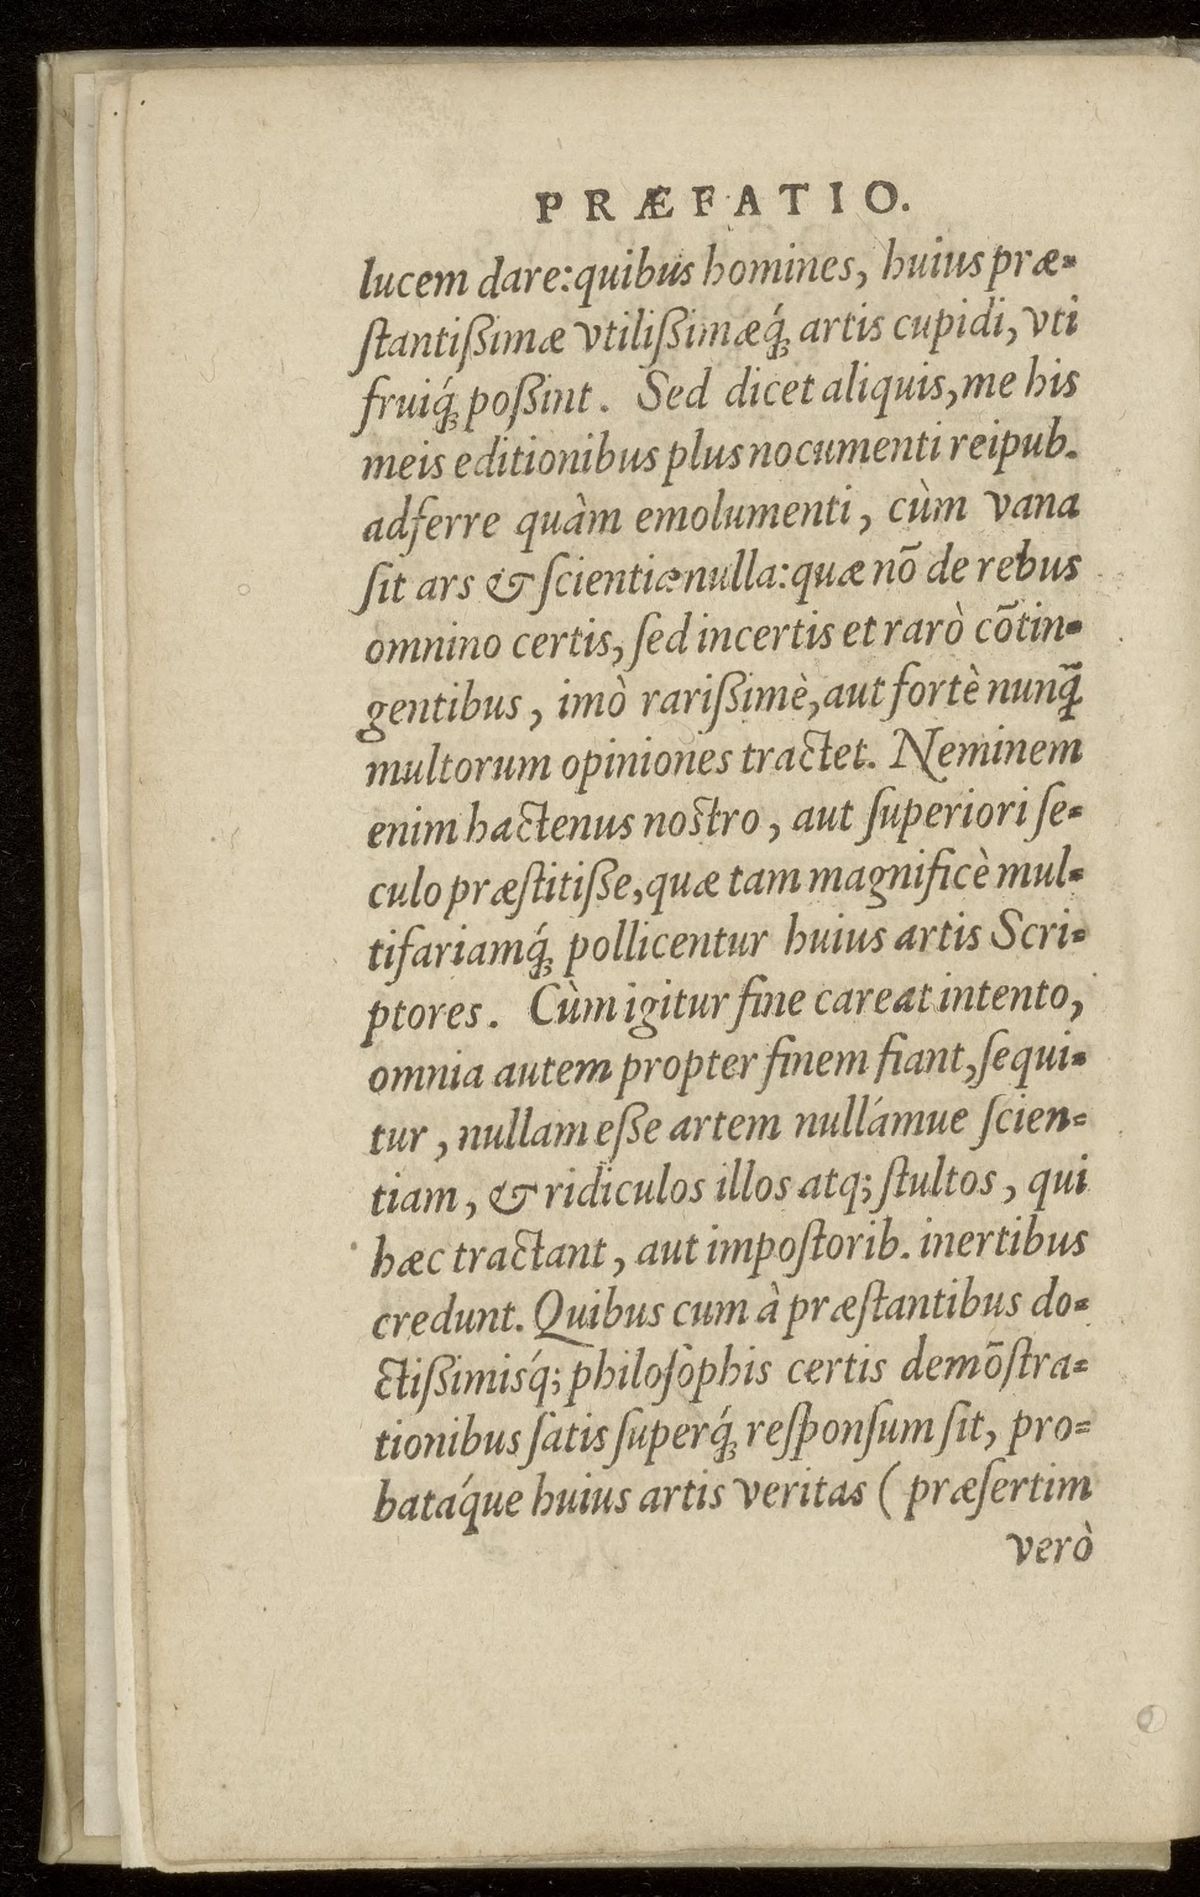 PRÆFATIO.
lucem dare: quibus homines, huius præ-
ſtantißimæ vtilißimæq́ꝫ artis cupidi, vti
fruiq́ꝫ poßint. Sed dicet aliquis, me his
meis editionibus plus nocumenti reipub.
adferre quàm emolumenti, cùm vana
ſit ars & ſcientiæ nulla: quæ nō de rebus
omnino certis, ſed incertis et rarò cōtin-
gentibus, imò rarißimè, aut fortè nunq̃
multorum opiniones tractet. Neminem
enim hactenus noſtro, aut ſuperiori ſe-
culo præſtitiſſe, quæ tam magnificè mul-
tifariamq́ꝫ pollicentur huius artis Scri-
ptores. Cùm igitur fine careat intento,
omnia autem propter finem fiant, ſequi-
tur, nullam eſſe artem nullámue ſcien-
tiam, & ridiculos illos atq; ſtultos, qui
hæc tractant, aut impoſtorib. inertibus
credunt. Quibus cum à præſtantibus do-
ctißimisq́; philoſophis certis demōſtra-
tionibus ſatis ſuperq́ꝫ reſponſum ſit, pro-
batáque huius artis veritas ( præſertim
verò